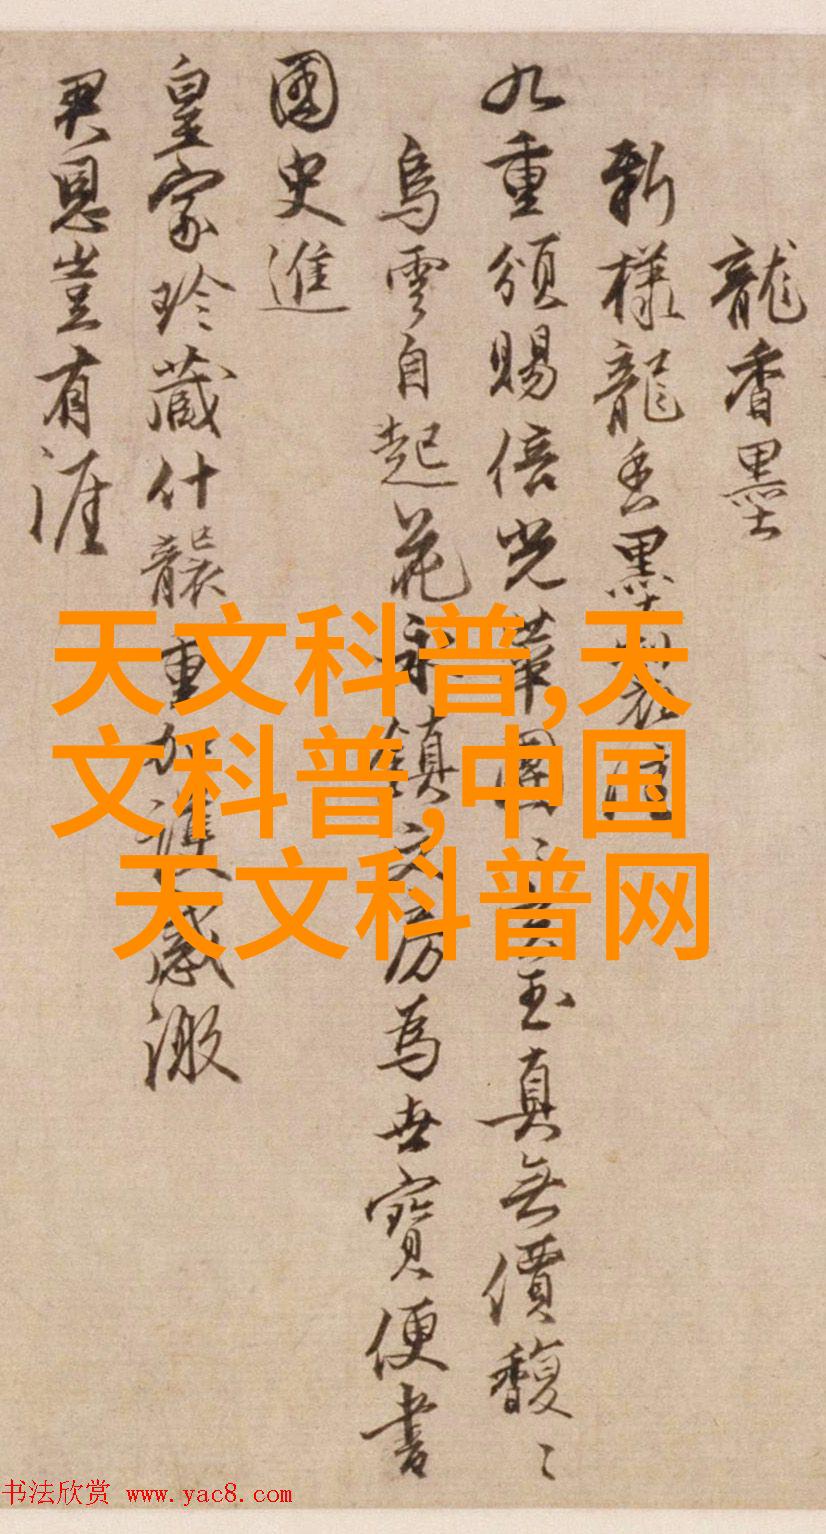 龍香墨
新樣龍香墨製
九重頒賜倍光華圜玉真無價馥〻
烏雲自起花永鎮文房為世寶便書
國史進
皇家珍藏什襲重加謹感激
君恩豈有涯
天文科普,天
文科普,中国
天文科普网
书法欣赏 www.yac8.com